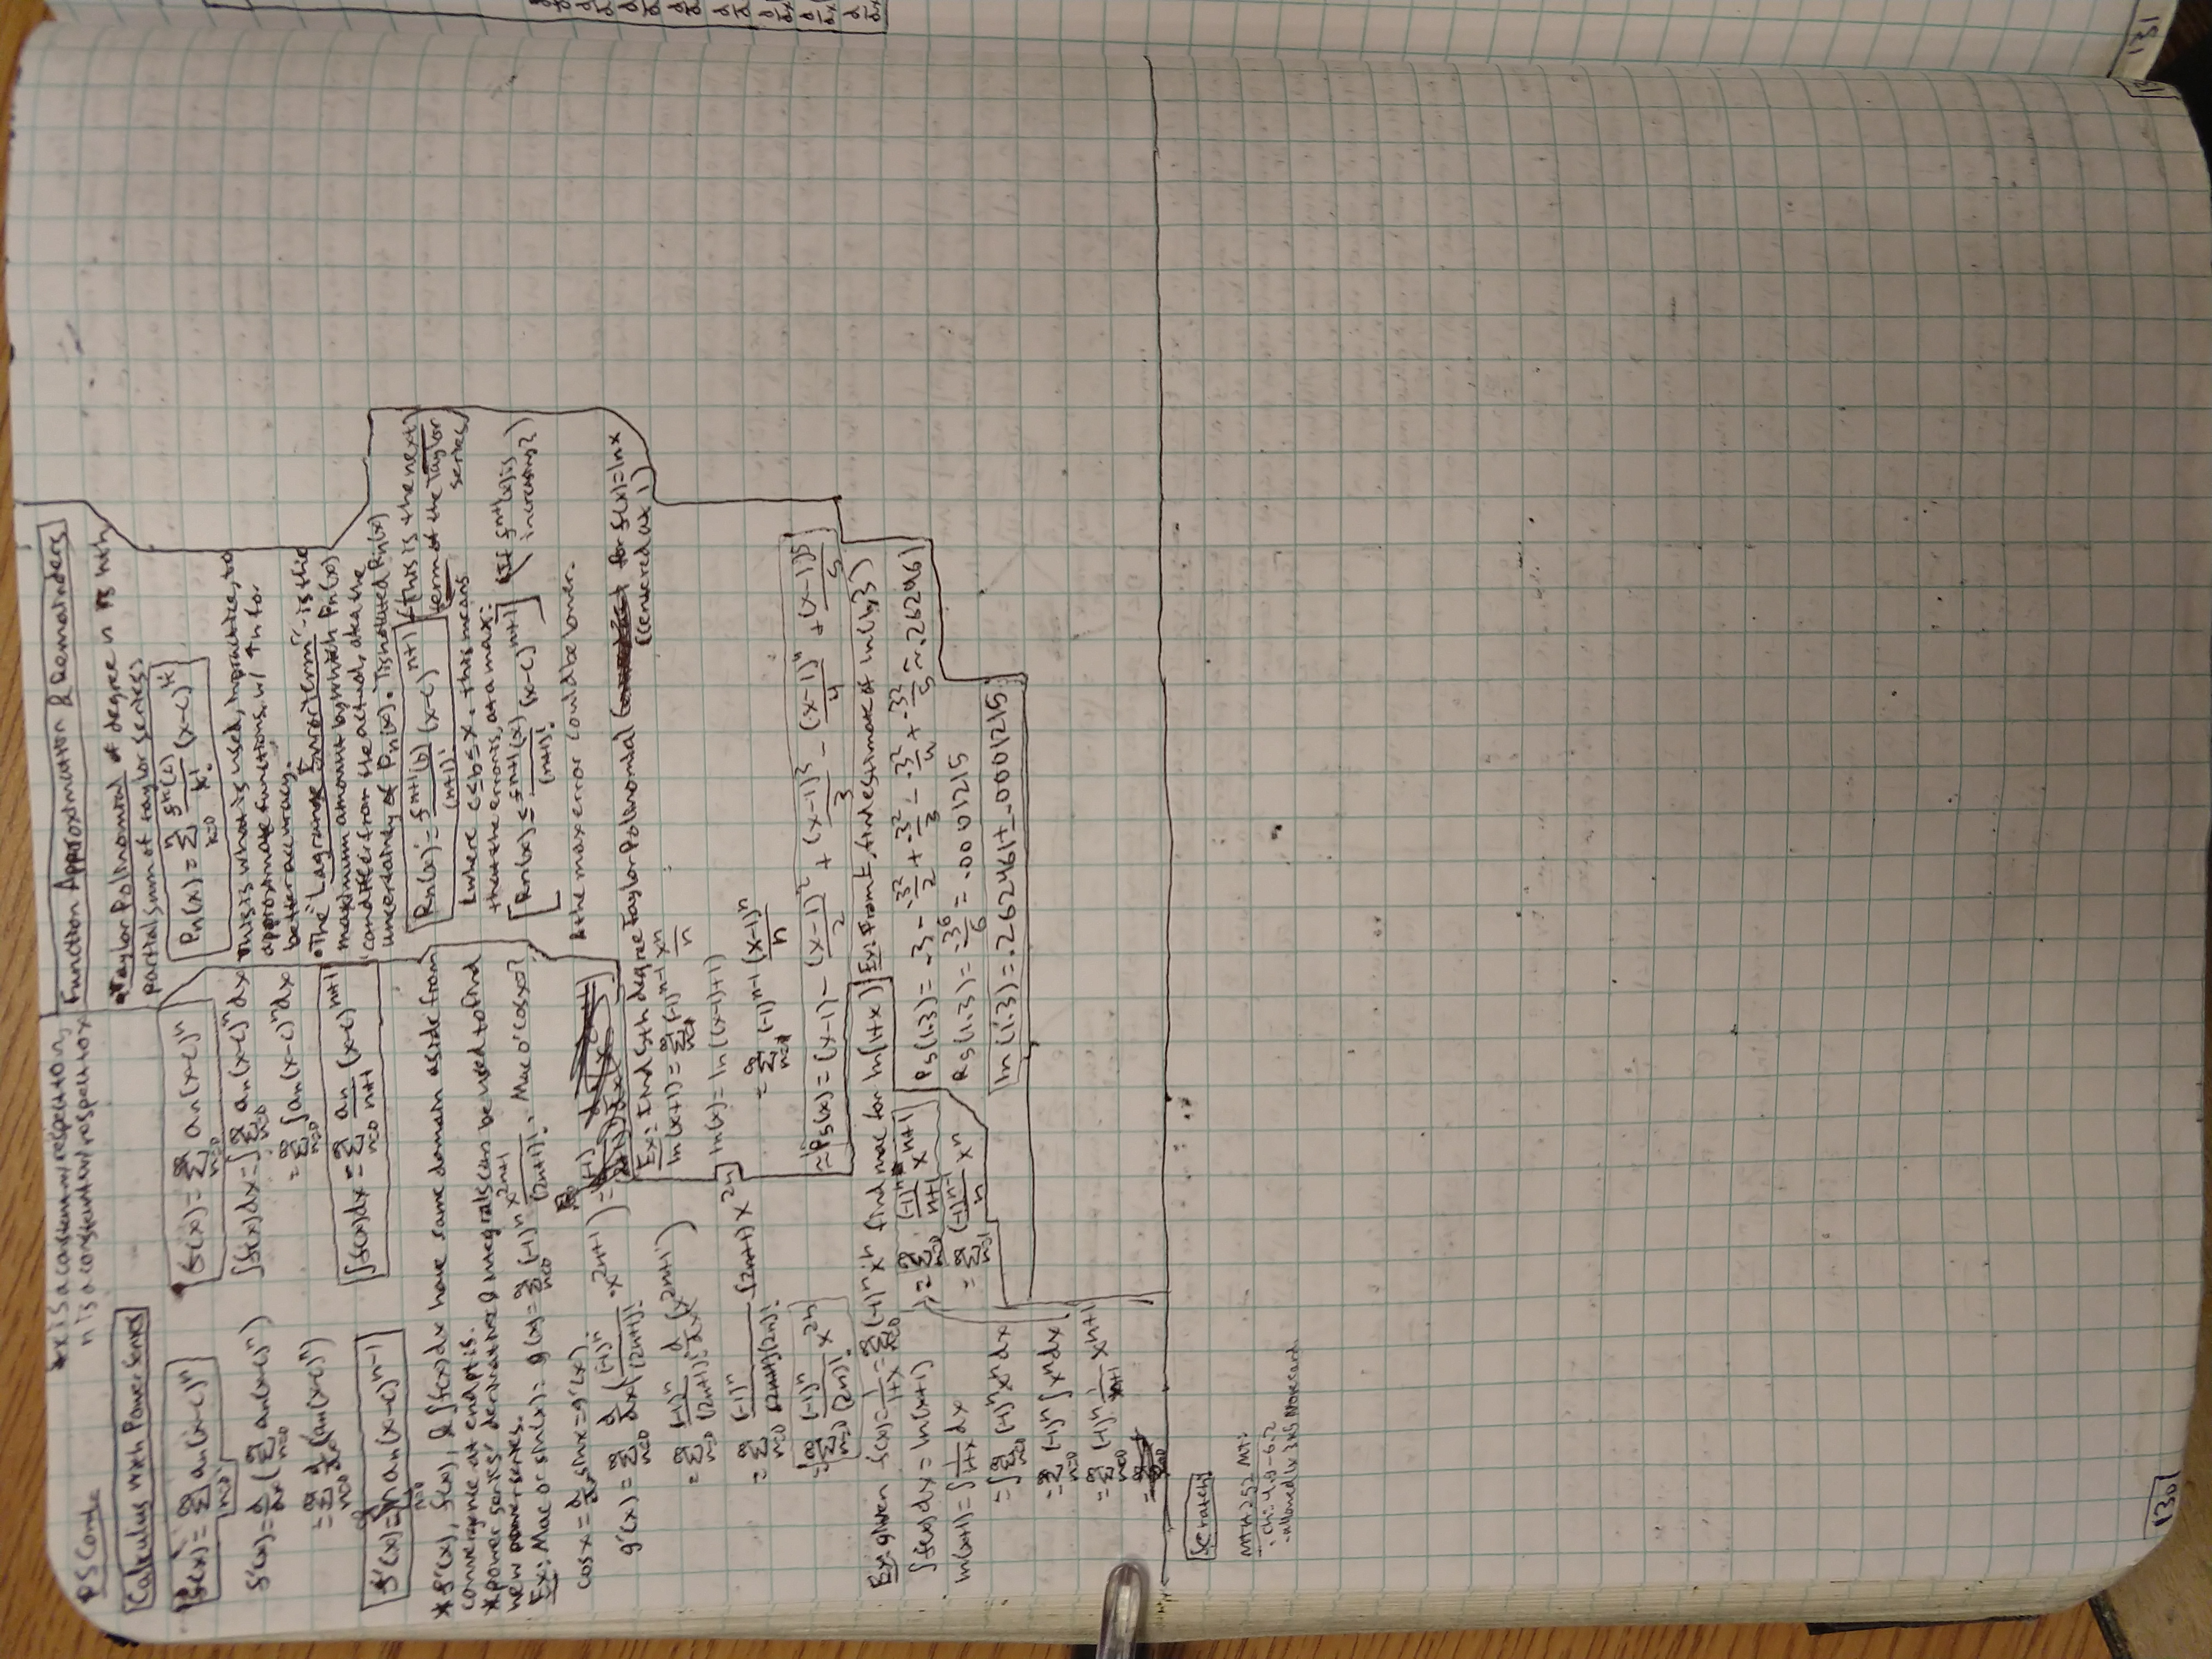 PS Cont.
*x is a constant w/ respect to n,
n is a constant w/ respect to x
Calculus With Power Series
f(x) = ∑_{n=0}^∞ a_n(x-c)^n
f'(x) = d/dx (∑_{n=0}^∞ a_n(x-c)^n)
= ∑_{n=0}^∞ d/dx (a_n(x-c)^n)
f'(x) = ∑_{n=0}^∞ n a_n(x-c)^{n-1}
f(x) = ∑_{n=0}^∞ a_n(x-c)^n
∫f(x)dx = ∫∑_{n=0}^∞ a_n(x-c)^n dx
= ∑_{n=0}^∞ ∫a_n(x-c)^n dx
∫f(x)dx = ∑_{n=0}^∞ a_n/(n+1) (x-c)^{n+1}
* f'(x), f(x), & ∫f(x)dx have same domain aside from
convergence at endpts.
* power series' derivatives & integrals can be used to find
new power series.
Ex: Mac o' sin(x): g(x) = ∑_{n=0}^∞ (-1)^n x^{2n+1}/(2n+1)!. Mac o' cosx=?
cosx = d/dx sinx = g'(x).
g'(x) = ∑_{n=0}^∞ d/dx ((-1)^n/(2n+1)! · x^{2n+1})
= ∑_{n=0}^∞ (-1)^n/(2n+1)! d/dx (x^{2n+1})
= ∑_{n=0}^∞ (-1)^n/((2n+1)(2n)!) (2n+1) x^{2n}
= ∑_{n=0}^∞ (-1)^n/(2n)! x^{2n}
Ex: given f(x) = 1/(1+x) = ∑_{n=0}^∞ (-1)^n x^n find mac for ln(1+x)
∫f(x)dx = ln(x+1)
ln(x+1) = ∫ 1/(1+x) dx
= ∫∑_{n=0}^∞ (-1)^n x^n dx
= ∑_{n=0}^∞ (-1)^n ∫x^n dx
= ∑_{n=0}^∞ (-1)^n 1/(n+1) x^{n+1}
= ∑_{n=0}^∞ (-1)^n/(n+1) x^{n+1}
= ∑_{n=1}^∞ (-1)^{n-1}/n x^n
Function Approximation & Remainders
• Taylor Polinomial of degree n is nth
partial sum of taylor series:
P_n(x) = ∑_{k=0}^n f^k(c)/k! (x-c)^k
This is what is used, in practice, to
approximate functions, w/ ↑n for
better accuracy.
• The "Lagrange Error term" - is the
maximum amount by which P_n(x)
can differ from the actual, aka the
uncertainty of P_n(x). Is notated R_n(x)
R_n(x) = f^{n+1}(b)/(n+1)! (x-c)^{n+1}
(This is the next
term of the Taylor
series)
where c≤b≤x. this means
that the error is, at a max:
R_n(x) ≤ f^{n+1}(x)/(n+1)! (x-c)^{n+1}
(If f^{n+1}(x) is
increasing?)
& the max error could be lower.
Ex: Find 5th degree Taylor Polinomial for f(x)=lnx
(centered at 1)
ln(x+1) = ∑_{n=1}^∞ (-1)^{n-1} x^n/n
ln(x) = ln((x-1)+1)
= ∑_{n=1}^∞ (-1)^{n-1} (x-1)^n/n
≈ P_5(x) = (x-1) - (x-1)^2/2 + (x-1)^3/3 - (x-1)^4/4 + (x-1)^5/5
Ex: From ↑, find estimate of ln(1.3)
P_5(1.3) = .3 - .3^2/2 + .3^2/3 - .3^2/4 + .3^2/5 ≈ .262461
R_5(1.3) = .3^6/6 = .0001215
ln(1.3) = .262461 ± .0001215
Scratch
MTH 252 MT:
· Ch: 4.9-6.2
- allowed 1x 3x5 Notecard.
130
131